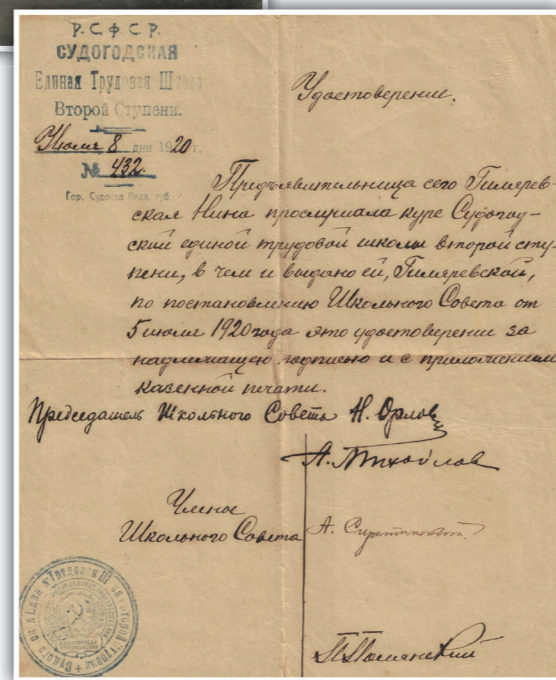 Р. С. Ф. С. Р.
СУДОГОДСКАЯ
Единая Трудовая
Второй Ступени.
Июля 8 дня 1920 г.
№ 432.
Гор. Судогда Влад. губ.
Удостоверение.
Предъявительница сего Гиляров-
ская Нина прослушала курс Судогод-
ской единой трудовой школы второй сту-
пени, в чем и выдано ей, Гиляревской,
по постановлению Школьного Совета от
5 июля 1920 года это удостоверение за
надлежащею подписью и с приложением
казенной печати.
Председатель Школьного Совета Н. Орлов
А. Михайлов
Члены
Школьного Совета
А.